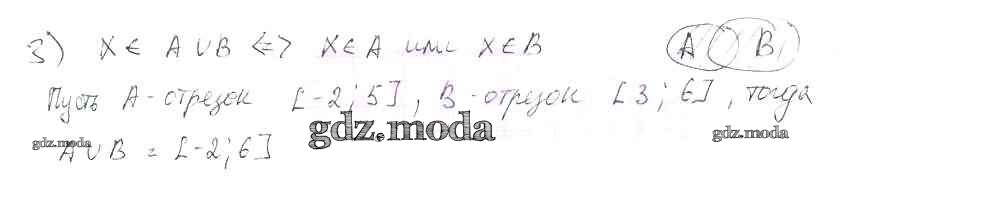 3) X ∈ A ∪ B <=> X ∈ A или X ∈ B A B
Пусть A - отрезок [-2; 5], B - отрезок [3; 6], тогда
gdz.moda gdz.moda gdz.moda
A ∪ B = [-2; 6]